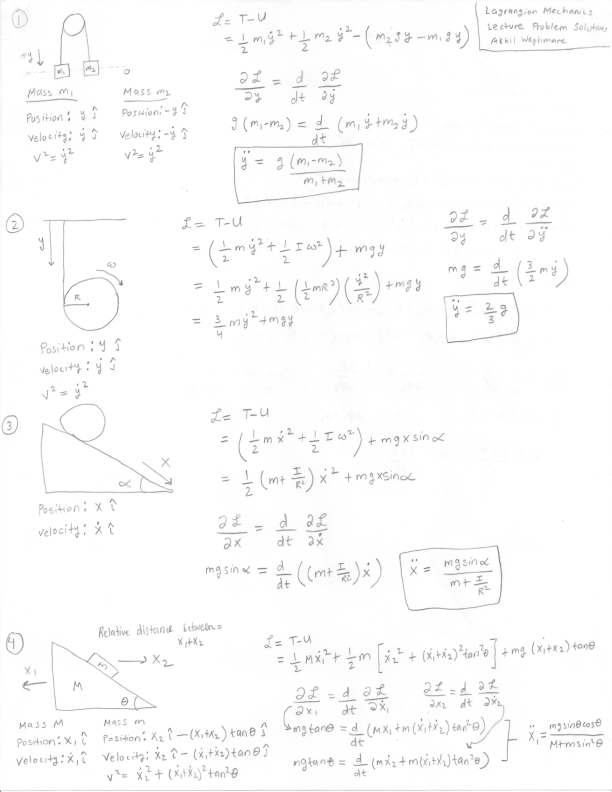 Lagrangian Mechanics
Lecture Problem Solutions
Akhil Waghmare
①
+y
m₁
m₂
0
Mass m₁
Position: y ĵ
Velocity: ẏ ĵ
V² = ẏ²
Mass m₂
Position: -y ĵ
Velocity: -ẏ ĵ
V² = ẏ²
ℒ = T-U
= 1/2 m₁ẏ² + 1/2 m₂ẏ² - (m₂gy - m₁gy)
∂ℒ/∂y = d/dt ∂ℒ/∂ẏ
g(m₁-m₂) = d/dt (m₁ẏ + m₂ẏ)
ÿ = g (m₁-m₂)/(m₁+m₂)
②
y
ω
R
Position: y ĵ
Velocity: ẏ ĵ
V² = ẏ²
ℒ = T-U
= (1/2 mẏ² + 1/2 Iω²) + mgy
= 1/2 mẏ² + 1/2 (1/2 mR²)(ẏ²/R²) + mgy
= 3/4 mẏ² + mgy
∂ℒ/∂y = d/dt ∂ℒ/∂ẏ
mg = d/dt (3/2 mẏ)
ÿ = 2/3 g
③
α
X
Position: x î
Velocity: ẋ î
ℒ = T-U
= (1/2 mẋ² + 1/2 Iω²) + mgx sinα
= 1/2 (m + I/R²) ẋ² + mgx sinα
∂ℒ/∂x = d/dt ∂ℒ/∂ẋ
mg sinα = d/dt ((m + I/R²) ẋ)
ẍ = mg sinα/(m + I/R²)
④
Relative distance between =
x₁+x₂
X₁
m
X₂
M
θ
Mass M
Position: x₁ î
Velocity: ẋ₁ î
Mass m
Position: x₂ î - (x₁+x₂) tanθ ĵ
Velocity: ẋ₂ î - (ẋ₁+ẋ₂) tanθ ĵ
V² = ẋ₂² + (ẋ₁+ẋ₂)² tan²θ
ℒ = T-U
= 1/2 Mẋ₁² + 1/2 m [ẋ₂² + (ẋ₁+ẋ₂)² tan²θ] + mg (x₁+x₂) tanθ
∂ℒ/∂x₁ = d/dt ∂ℒ/∂ẋ₁
∂ℒ/∂x₂ = d/dt ∂ℒ/∂ẋ₂
mg tanθ = d/dt (Mẋ₁ + m(ẋ₁+ẋ₂) tan²θ)
mg tanθ = d/dt (mẋ₂ + m(ẋ₁+ẋ₂) tan²θ)
ẍ₁ = mg sinθ cosθ/(M + m sin²θ)